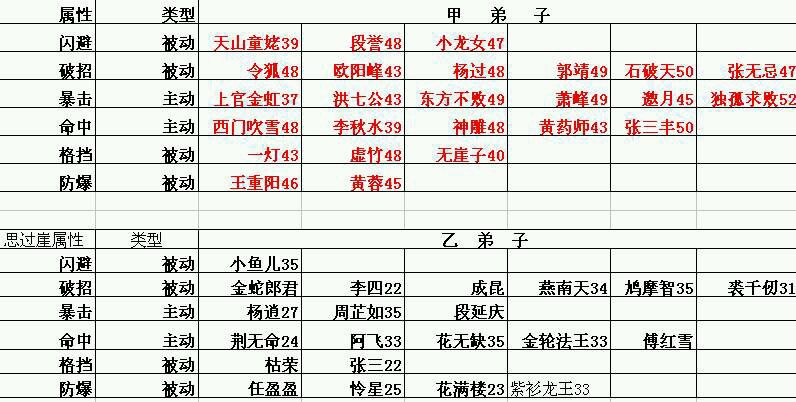 属性 类型 甲 弟 子
闪避 被动 天山童姥39 段誉48 小龙女47
破招 被动 令狐48 欧阳峰43 杨过48 郭靖49 石破天50 张无忌47
暴击 主动 上官金虹37 洪七公43 东方不败49 萧峰49 邀月45 独孤求败52
命中 主动 西门吹雪48 李秋水39 神雕48 黄药师43 张三丰50
格挡 被动 一灯43 虚竹48 无崖子40
防爆 被动 王重阳46 黄蓉45
思过崖属性 类型 乙 弟 子
闪避 被动 小鱼儿35
破招 被动 金蛇郎君 李四22 成昆 燕南天34 鸠摩智35 裘千仞31
暴击 主动 杨逍27 周芷如35 段延庆
命中 主动 荆无命24 阿飞33 花无缺35 金轮法王33 傅红雪
格挡 被动 枯荣 张三22
防爆 被动 任盈盈 怜星25 花满楼23 紫衫龙王33